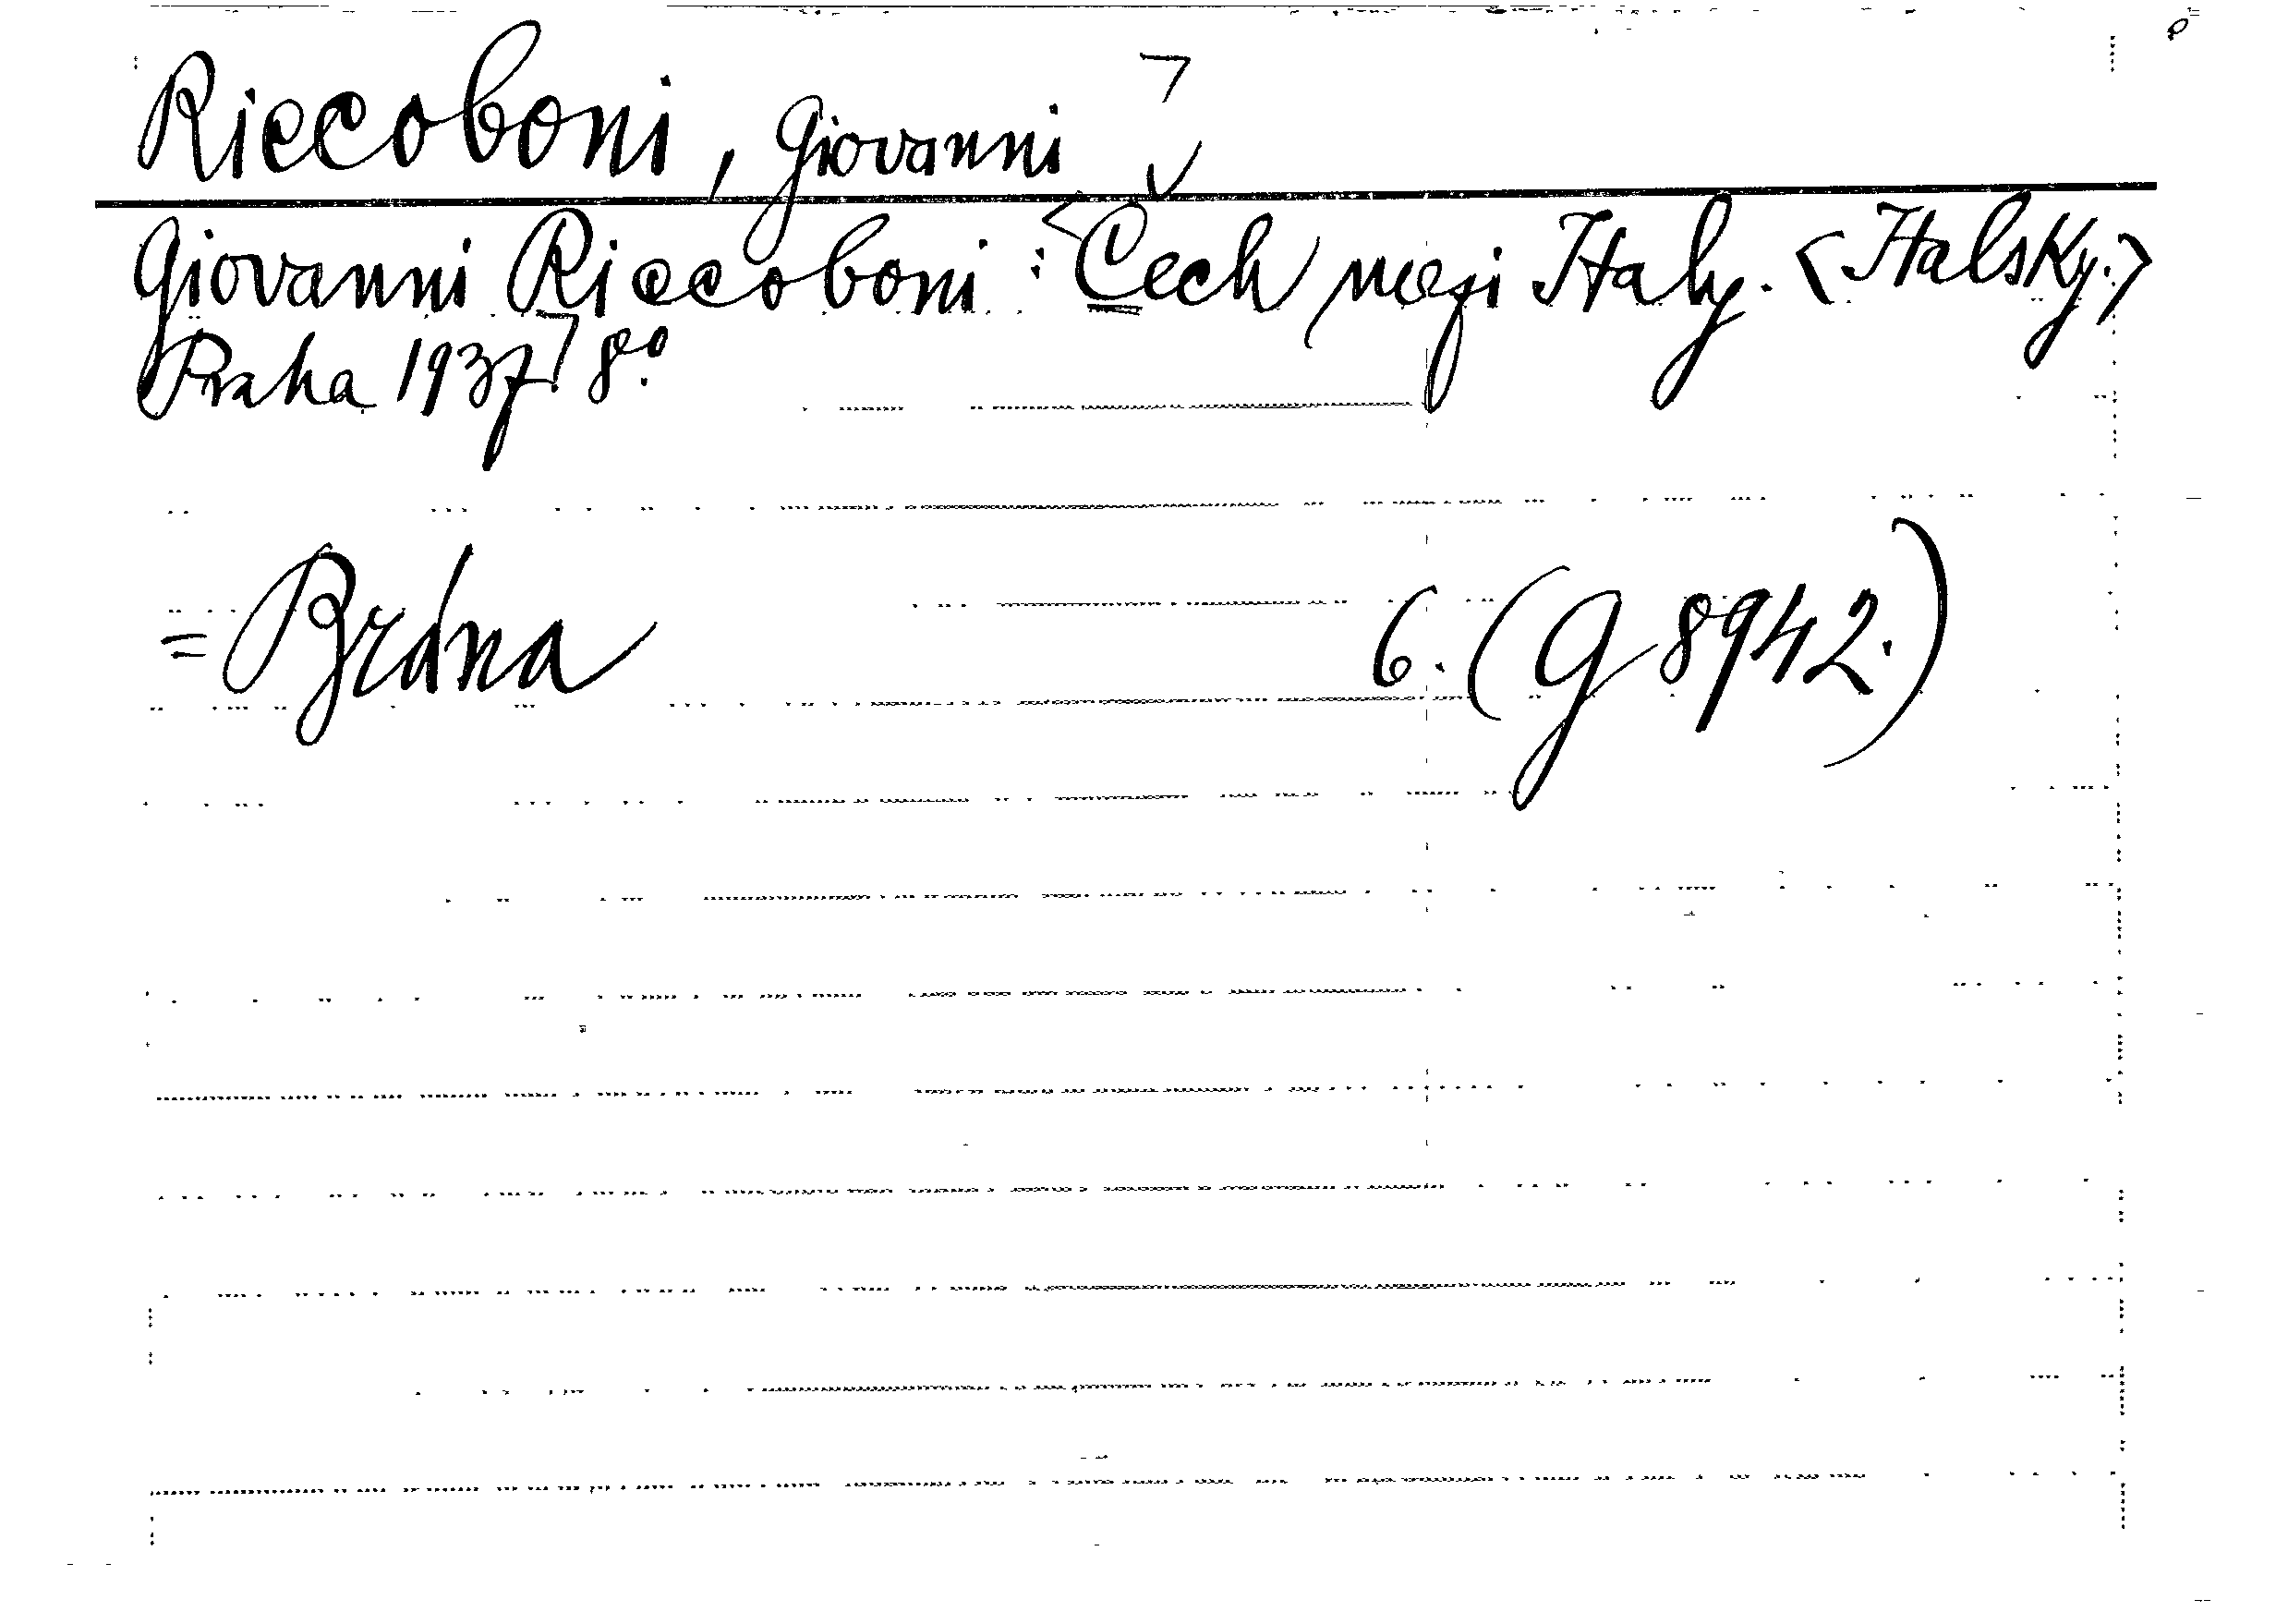 Riccoboni, Giovanni ⌝
Giovanni Riccoboni: <Čech mezi Italy. <Italsky.>
Praha 1937⌝ 8.º
= Brána 6. (G 8942.)